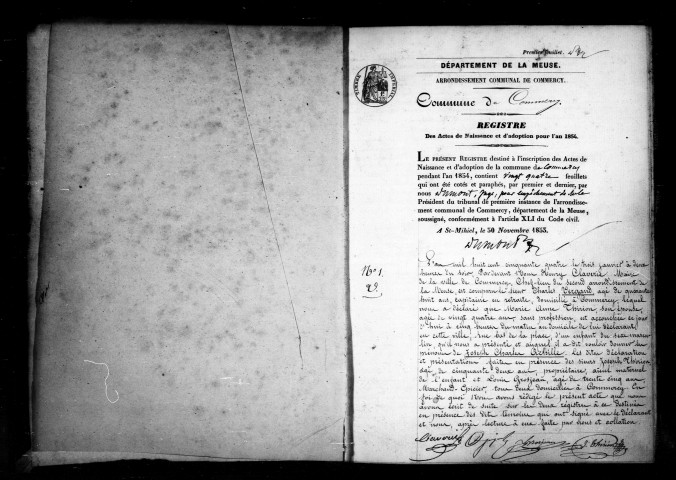 Premier feuillet.
DÉPARTEMENT DE LA MEUSE.
ARRONDISSEMENT COMMUNAL DE COMMERCY.
Commune de Commercy
REGISTRE
Des Actes de Naissance et d'adoption pour l'an 1854.
LE PRÉSENT REGISTRE destiné à l'inscription des Actes de
Naissance et d'adoption de la commune de Commercy
pendant l'an 1854, contient vingt quatre feuillets
qui ont été cotés et paraphés, par premier et dernier, par
nous Dumont, juge, pour empêchement de M. le
Président du tribunal de première instance de l'arrondisse-
ment communal de Commercy, département de la Meuse,
soussigné, conformément à l'article XLI du Code civil.
A St-Mihiel, le 30 Novembre 1853.
Dumont
No 1.
L'an mil huit cent cinquante quatre le trois janvier à deux
heures du soir, Pardevant Nous Henry Claverie Maire
de la ville de Commercy, Chef-lieu du second arrondissement de
la Meuse, est comparu le sieur Charles Vergand, âgé de quarante
huit ans, capitaine en retraite, domicilié à Commercy, lequel
nous a déclaré que Marie Anne Thirion, son épouse,
âgée de vingt quatre ans, sans profession, est accouchée ce jour
d'hui à cinq heures du matin au domicile de lui déclarant
en cette ville, rue bas de la place, d'un enfant du sexe mascu-
lin, qu'il nous a présenté et auquel il a dit vouloir donner les
prénoms de Joseph Charles Achille. Les dites déclaration
et présentation faites en présence des sieurs Joseph Thirion
âgé de cinquante deux ans, propriétaire, aïeul maternel
de l'enfant et Louis Grosjean, âgé de trente cinq ans,
Marchand Epicier, tous deux domiciliés à Commercy. En
foi de quoi Nous avons rédigé le présent acte que nous
avons écrit de suite sur les deux registres à ce destinés
en présence des dits témoins qui ont signé avec le déclarant
et nous, après lecture à eux faite par nous et collation